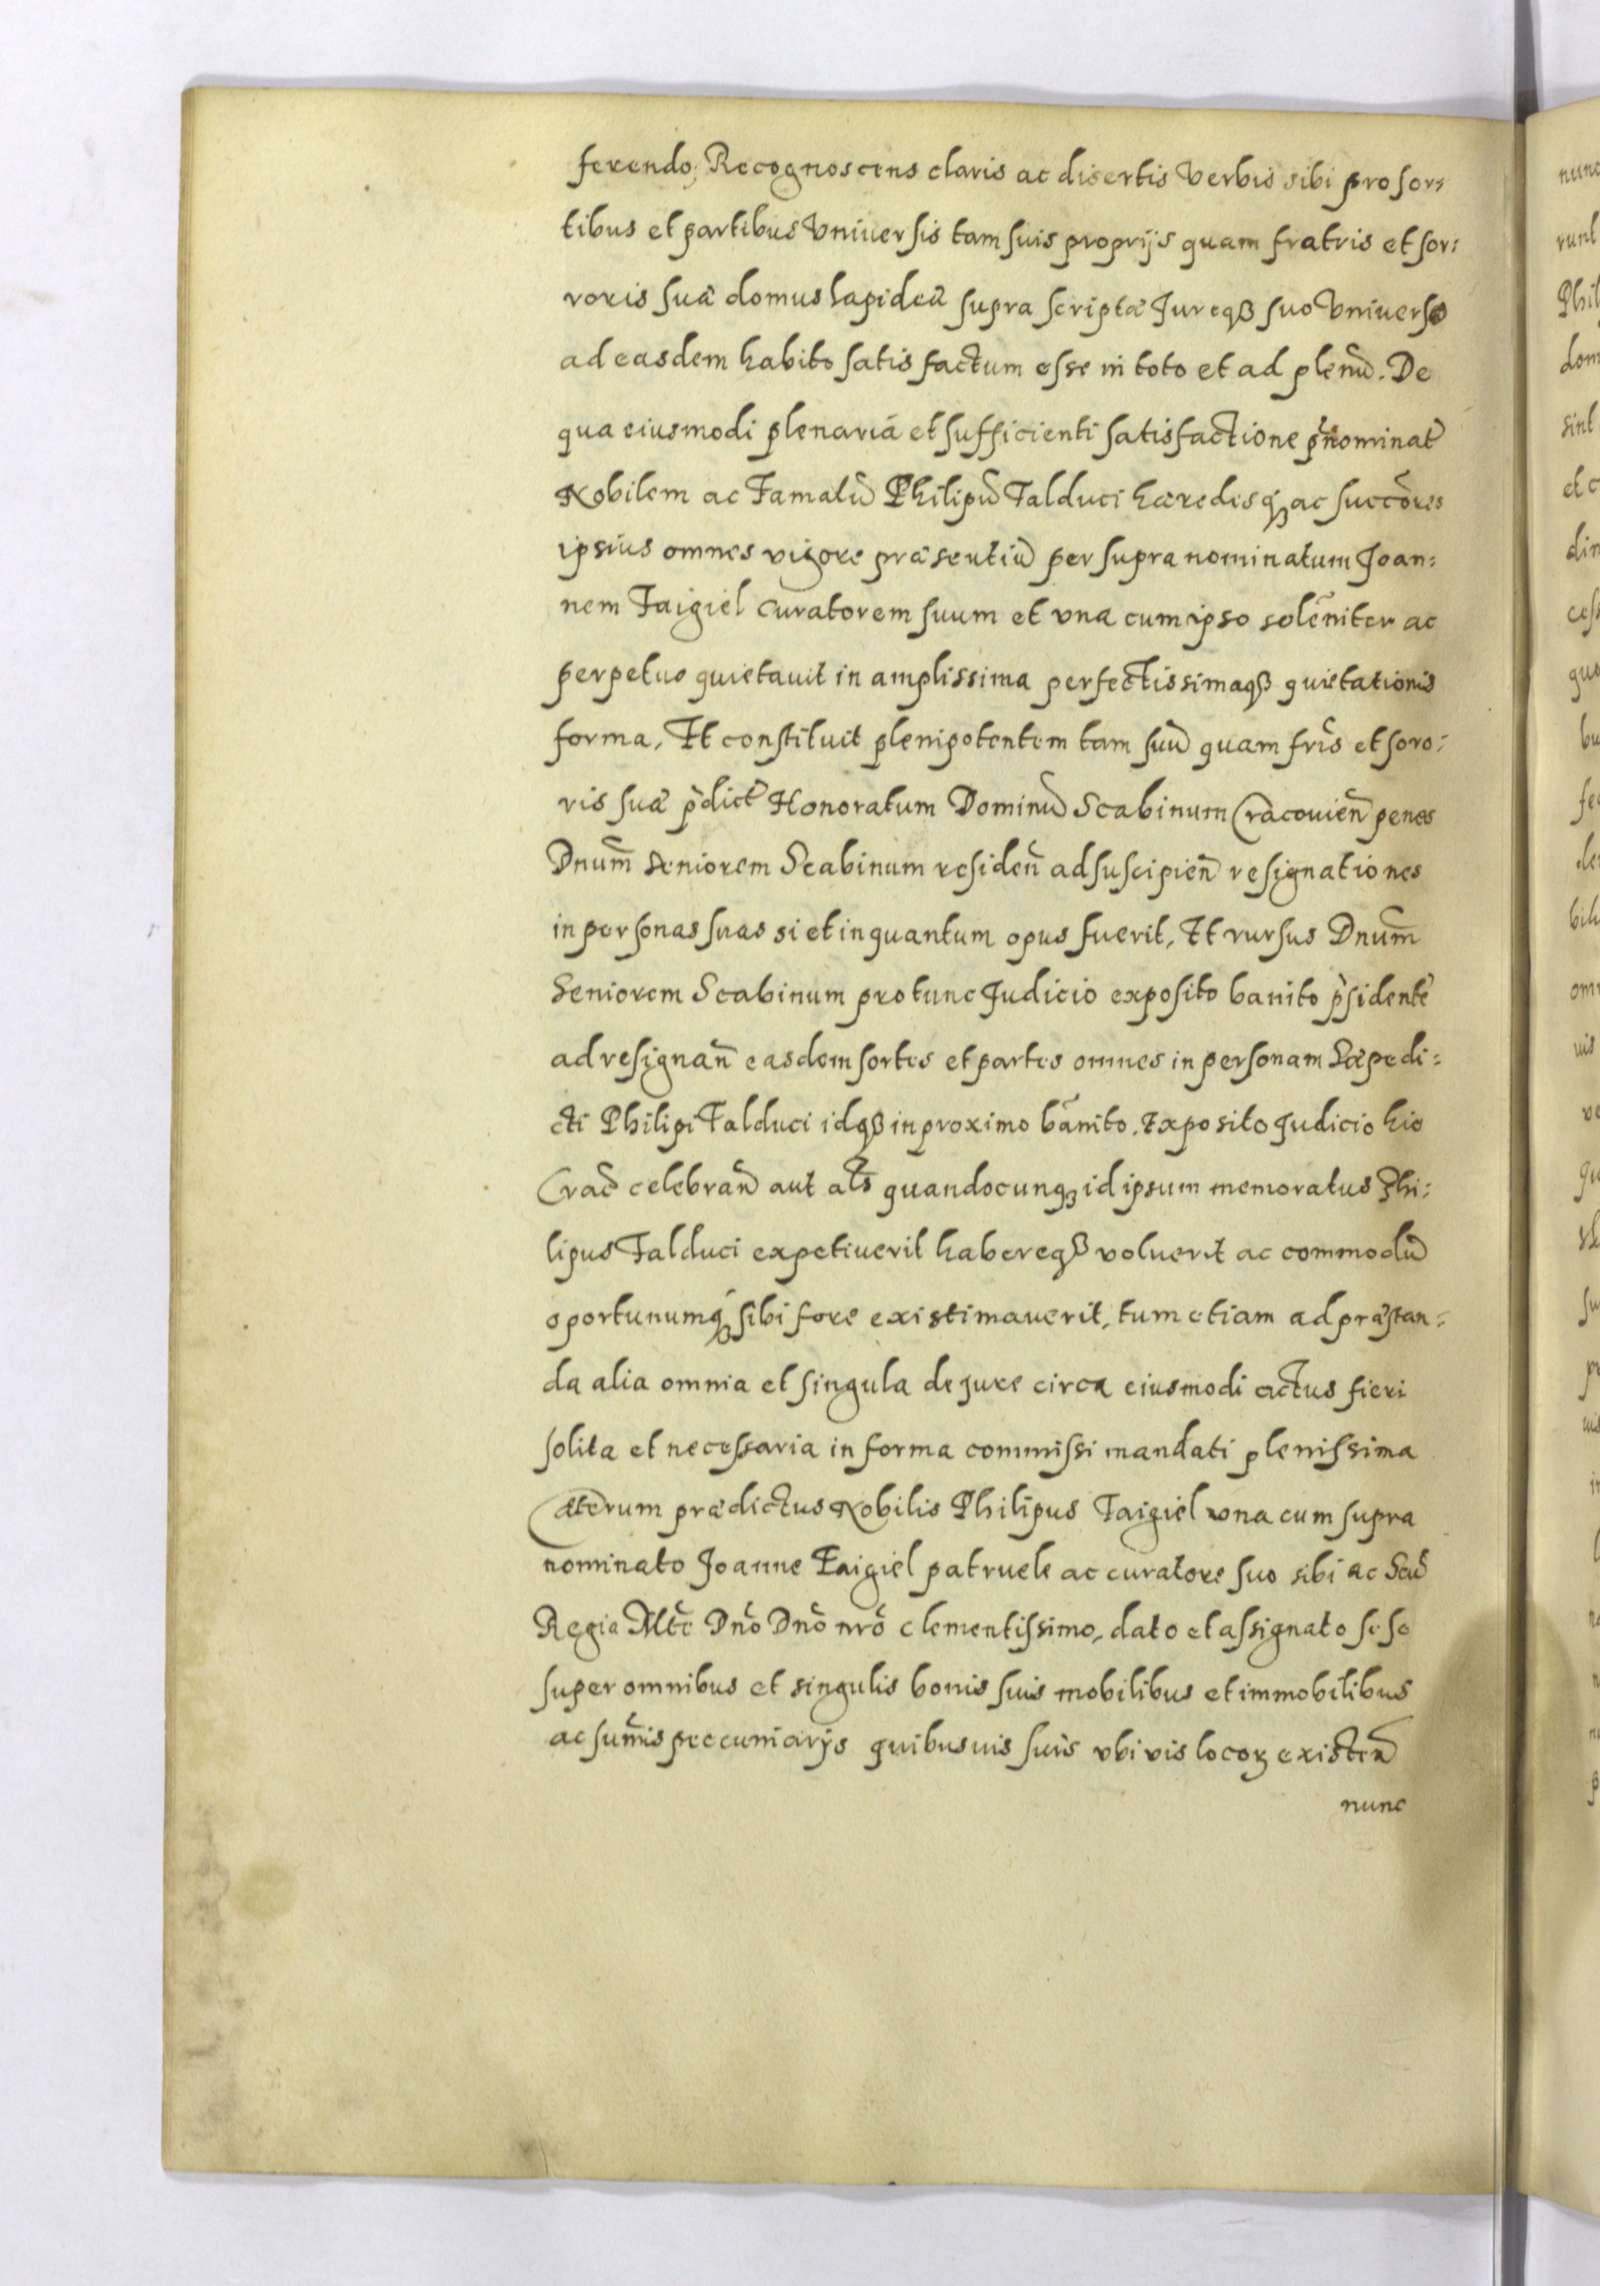 ferendo, Recognoscens claris ac disertis verbis sibi pro sor:
tibus et partibus vniuersis tam suis proprijs quam fratris et sor:
roris suæ domus lapideæ supra scriptæ Jureqȝ suo vniuerso
ad easdem habito satisfactum esse in toto et ad plenū. De
qua eiusmodi plenaria et sufficienti satisfactione p̄nominat̄
Nobilem ac Famatū Philipū Talduci hæredesqȝ ac succōres
ipsius omnes vigore præsentiū per supra nominatum Joan:
nem Faigiel curatorem suum et vna cum ipso solēniter ac
perpetuo quietauit in amplissima perfectissimaqȝ quietationis
forma, Et constituit plenipotentem tam suū quam fris̄ et soro:
ris suæ p̄dict̄ Honoratum Dominū Scabinum Cracouien̄ penes
Dnum̄ Seniorem Scabinum residen̄ ad suscipien̄ resignationes
in personas suas si et in quantum opus fuerit, Et rursus Dnum̄
Seniorem Scabinum pro tunc Judicio exposito banito p̄sidente
ad resignan̄ easdem sortes et partes omnes in personam sæpedi:
cti Philipi Talduci idqȝ in proximo bānito. Exposito Judicio hic
Crac̄ celebran̄ aut al̄s quandocunqȝ id ipsum memoratus Phi:
lipus Talduci expetiuerit habereqȝ voluerit ac commodū
oportunumqȝ sibi fore existimauerit, tum etiam ad præstan:
da alia omnia et singula de jure circa eiusmodi actus fieri
solita et necessaria in forma commissi mandati plenissima
Cæterum prædictus Nobilis Philipus Faigiel vna cum supra
nominato Joanne Faigiel patruele ac curatore suo sibi ac
Regia Mtē Dnō Dnō nrō clementissimo, dato et assignato sese
super omnibus et singulis bonis suis mobilibus et immobilibus
ac sum̄is peccuniarijs quibusuis suis vbi vis locoꝝ existen̄
nunc